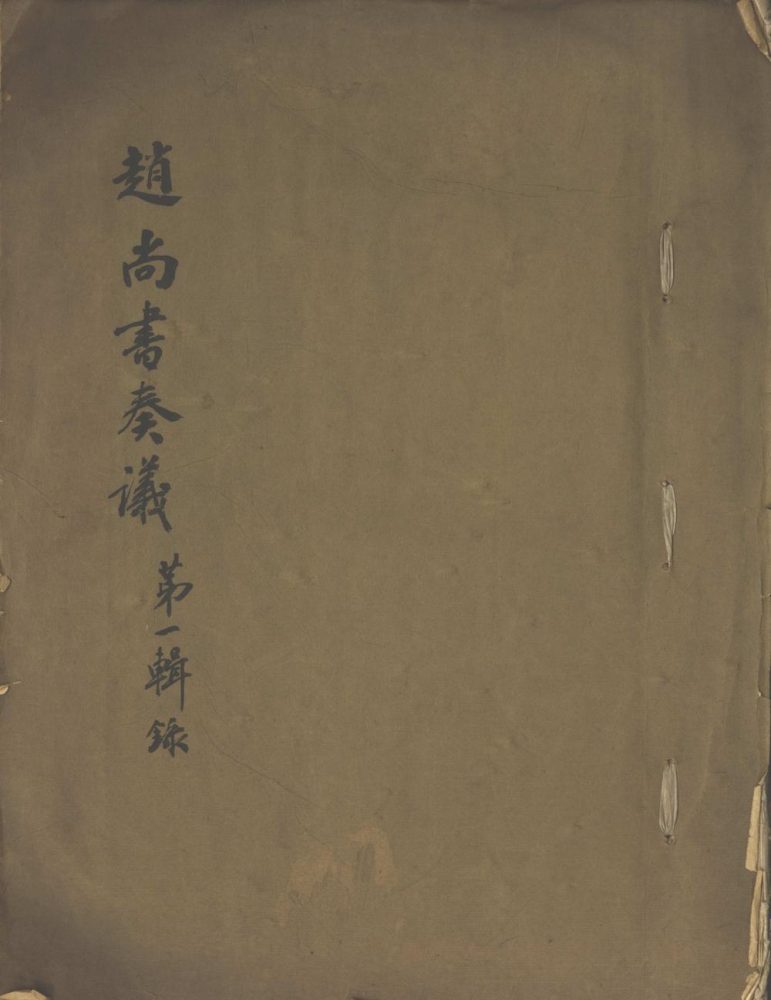 趙尚書奏議
第一輯錄